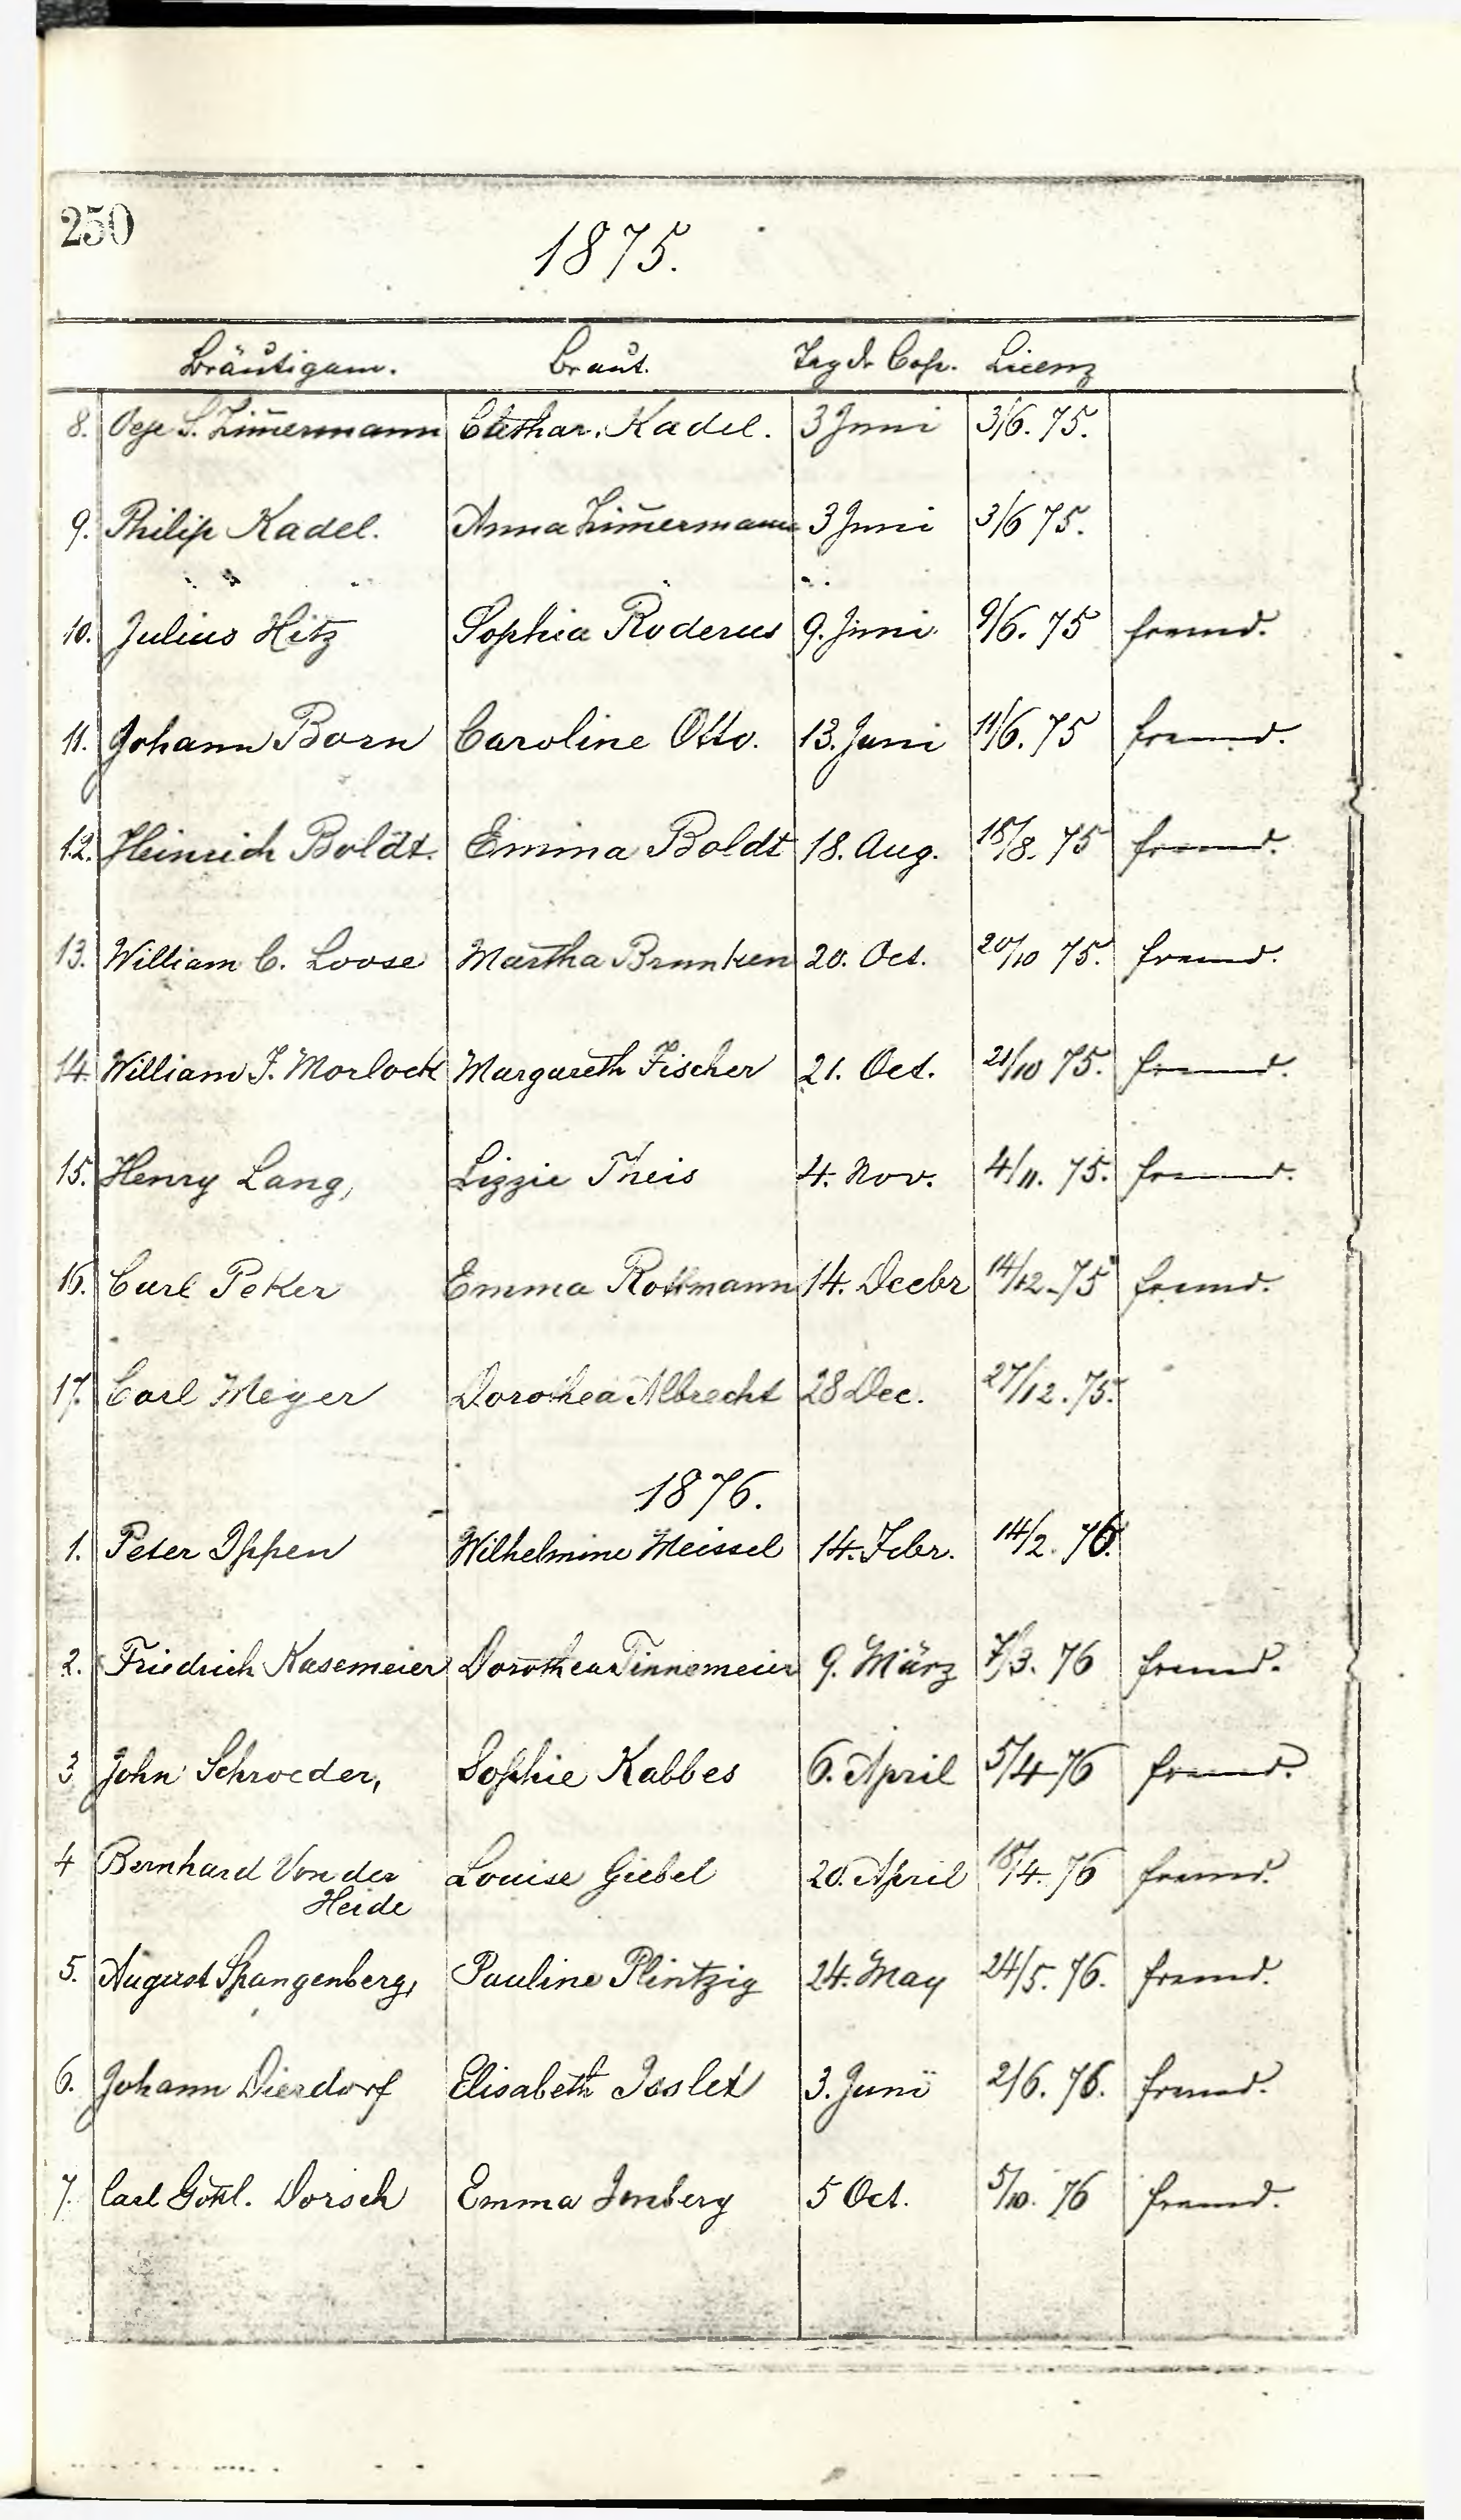 250
1875.
Bräutigam. Braut. Tag dr Cop. Licenz
8. S. Zim̄ermann Kadel. 3 Juni 3/6. 75.
9. Philip Kadel. Anna Zim̄ermann 3 Juni 3/6 75.
10. Julius Hitz Sophia Roderus 9. Juni. 9/6. 75 fremd.
11. Johann Born Caroline Otto. 13. Juni 11/6. 75 fremd.
12. Heinrich Boldt. Emma Boldt 18. Aug. 18/8. 75 fremd.
13. William C. Loose Martha Brunken 20. Oct. 20/10 75. fremd.
14. William F. Morlock Margareth Fischer 21. Oct. 21/10 75. fremd.
15. Henry Lang, Lizzie Theis 4. Nov. 4/11. 75. fremd.
16. Carl Peker Emma Rottmann 14. Decbr 14/12. 75 fremd.
17. Carl Meyer Dorothea Albrecht 28 Dec. 27/12. 75.
1876.
1. Peter Ippen Wilhelmine Meissel 14. Febr. 14/2. 76.
2. Friedrich Kasemeier Dorothea Tinnemeier 9. März 7/3. 76 fremd.
3 John Schroeder, Sophie Kabbes 6. April 5/4 76 fremd.
4 Bernhard Von der Louise Giebel 20. April 18/4. 76 fremd.
Heide
5. August Spangenberg, Pauline Plintzig 24. May 24/5. 76. fremd.
6. Johann Dierdorf Elisabeth Isslet 3. Juni 2/6. 76. fremd.
7. Carl Gottl. Dorsch Emma Imberg 5 Oct. 5/10. 76 fremd.